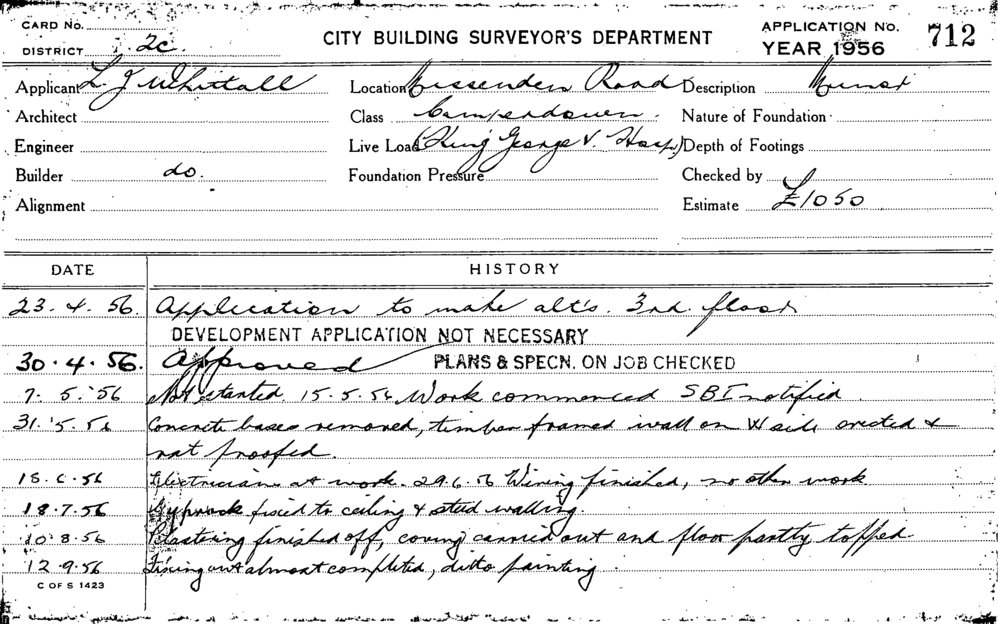 CARD NO.
DISTRICT 2c.
CITY BUILDING SURVEYOR'S DEPARTMENT
APPLICATION NO. 712
YEAR 1956
Applicant L. J Whittall
Location Missenden Road
Description
Architect
Class Camperdown.
Nature of Foundation
Engineer
Live Load (King George V. Hosp)
Depth of Footings
Builder do.
Foundation Pressure
Checked by
Alignment
Estimate £1050
DATE HISTORY
23.4.56. Application to make alt's. 3rd. floor
DEVELOPMENT APPLICATION NOT NECESSARY
30.4.56. Approved PLANS & SPECN. ON JOB CHECKED
7.5.56 Not started. 15.5.56 Work commenced SBI notified.
31.5.56 Concrete bases removed, timber framed wall on W side erected &
rat proofed.
15.6.56 Electricians at work. 29.6.56 Wiring finished, no other work
18.7.56 Gyprock fixed to ceiling & stud walling.
10.8.56 Plastering finished off, coving carried out and floor partly topped
12.9.56 Fixing out almost completed, ditto painting.
C OF S 1423